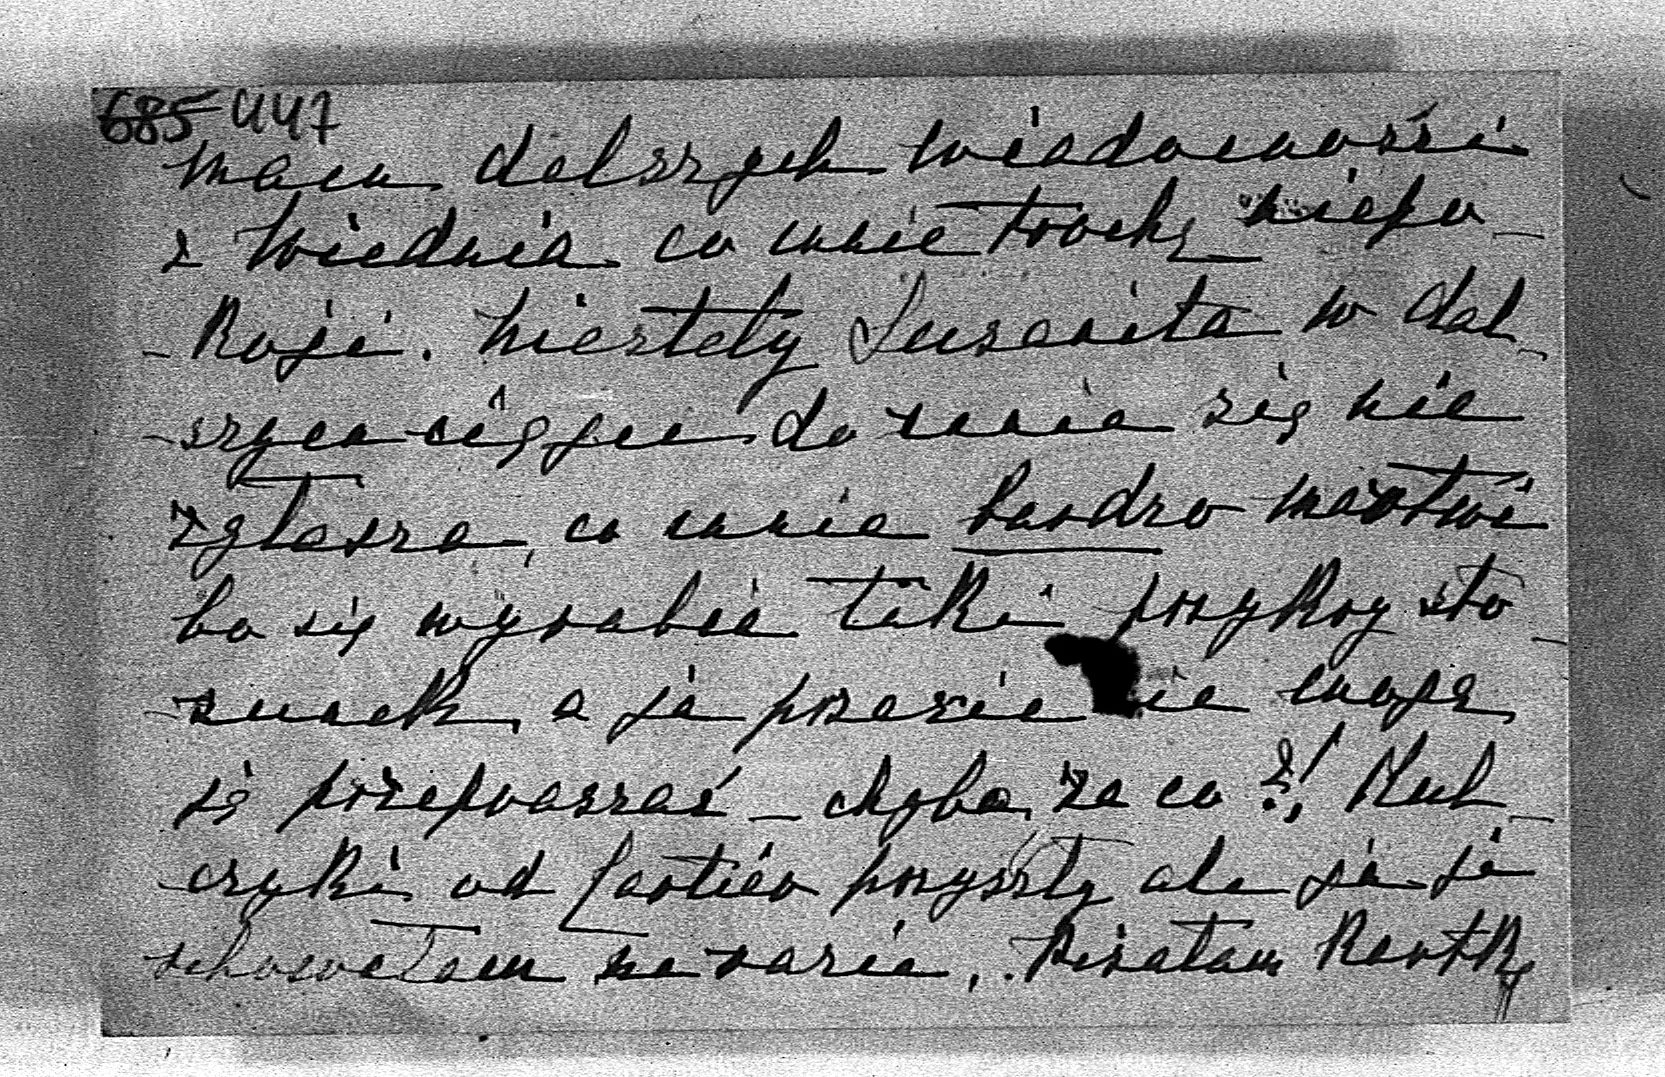 685 447
mam dalszych wiadomości
z Wiednia co mnie trochę niepo-
-koji. Niestety Zuzanita w dal-
-szym ciągu do mnie się nie
zgłasza, co mnie bardzo martwi
bo się wyrabia taki przykry sto-
-sunek, a ja prze nie mogę
ją przepraszać - chyba, za co?! Kul-
-czyki od przyszły ale ja je
schowałam na razie. Pisałam kartkę